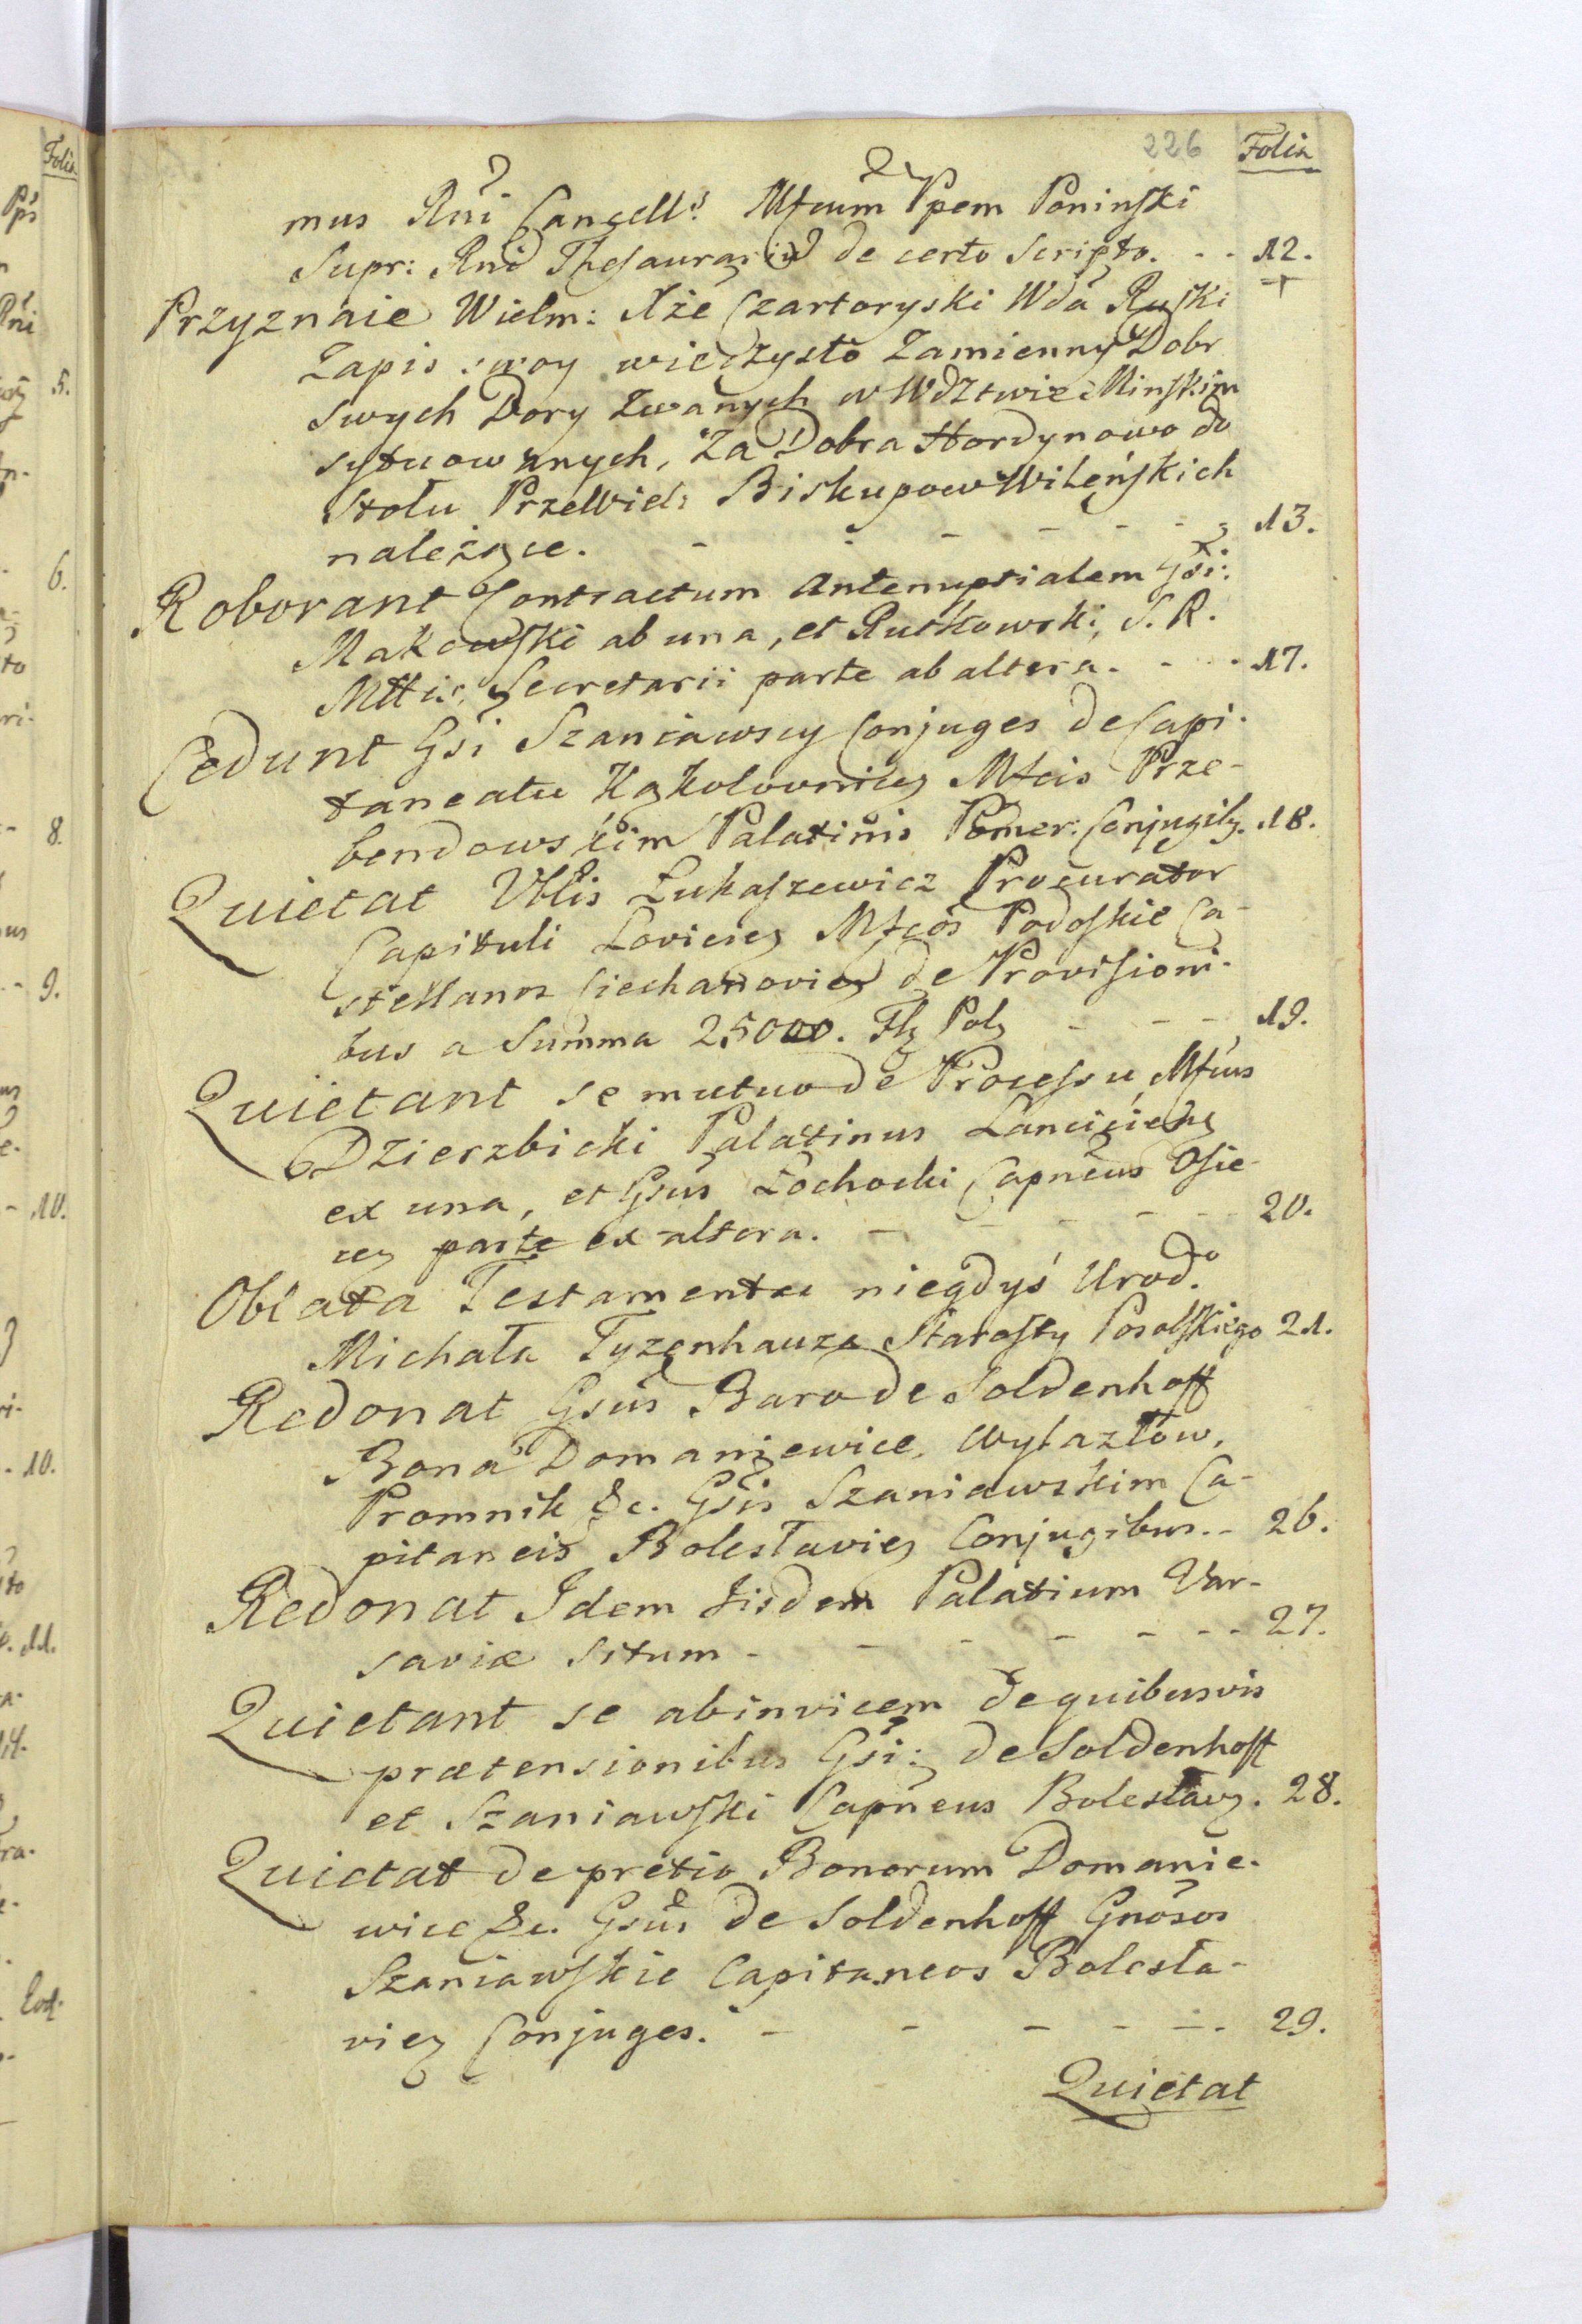 226 Folia
mus Rni Cancells Mfcum Ppem Poninski
Supr: Rni Thesaurarium de certo Scripto. - - 12.
Przyznaie Wielm: Xże Czartoryski Wda Ruski
Zapis swoy wieczysto Zamienny Dobr
swych Dory Zwanych w Wdztwie Minskim
sytuowanych, Za Dobra Hordynowo do
Stołu Przewiel: Biskupow Wileńskich
należące. - - - - - - 13.
Roborant Contractum Antenuptialem Gsi:
Makowski ab una, et Rutkowski, S. R.
Mttis: Secretarii parte ab altera. - - - 17.
Cedunt Gsi Szaniawscy Conjuges de Capi-
taneatu Kąkolovnicz Mfcis Prze-
bendowskim Palatinis Pomer: Conjugibz. 18.
Quietat Vblis Łukaszewicz Procurator
Capituli Loviciez Mfcos Podoskie Ca-
stellanos Ciechanoviez de Provisioni-
bus a Summa 25000. Flz Polz - - - 19.
Quietant se mutuo de Processu Mfcus
Dzierzbicki Palatinus Lanciciehz
ex una, et Gsus Łochocki Capneus Osie-
cez parte ex altera. - - - - - - 20.
Oblata Testamentu niegdyś Urodo
Michała Tyzenhauza Starosty Posolskiego 21.
Redonat Gsus Baro de Soldenhoff
Bona Domaniewice, Wylazłow,
Promnik &c. Gsis Szaniawskim Ca-
pitaneis Bolesłaviez Conjugibus. - 26.
Redonat Idem Iisdem Palatium Var-
saviæ situm - - - - - - - 27.
Quietant se abinvicem de quibusvis
prætensionibus Gsi: de Soldenhoff
et Szaniawski Capneus Bolesłavz. 28.
Quietat de pretio Bonorum Domanie-
wice &c. Gsus de Soldenhoff Gnosos
Szaniawskie Capitaneos Bolesła-
viez Conjuges. - - - - - - 29.
Quietat